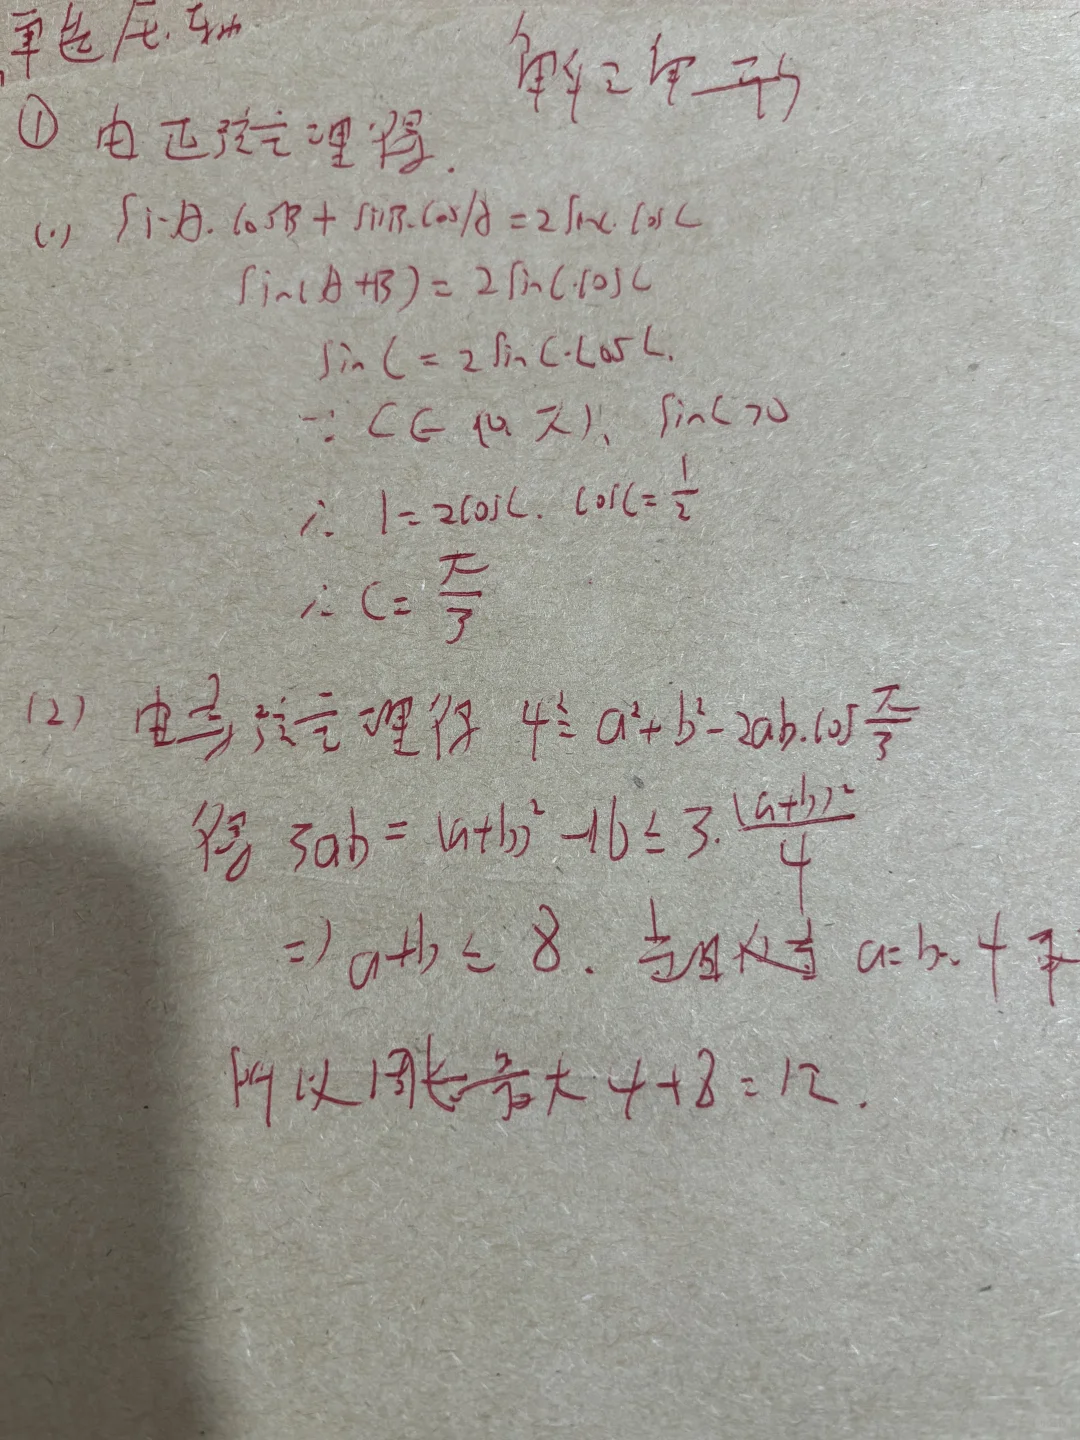 解三角形
① 由正弦定理得.
(1) sinA·cosB+sinB·cosA=2sinC·cosC
sin(A+B)=2sinC·cosC
sinC=2sinC·cosC.
∵ C∈(0,π), sinC>0
∴ 1=2cosC. cosC=\frac{1}{2}
∴ C=\frac{π}{3}
(2) 由余弦定理得 4²=a²+b²-2ab·cos\frac{π}{3}
得 3ab=(a+b)²-16≤3·\frac{(a+b)²}{4}
⇒ a+b≤8. 当且仅当 a=b=4 取
所以周长最大 4+8=12.